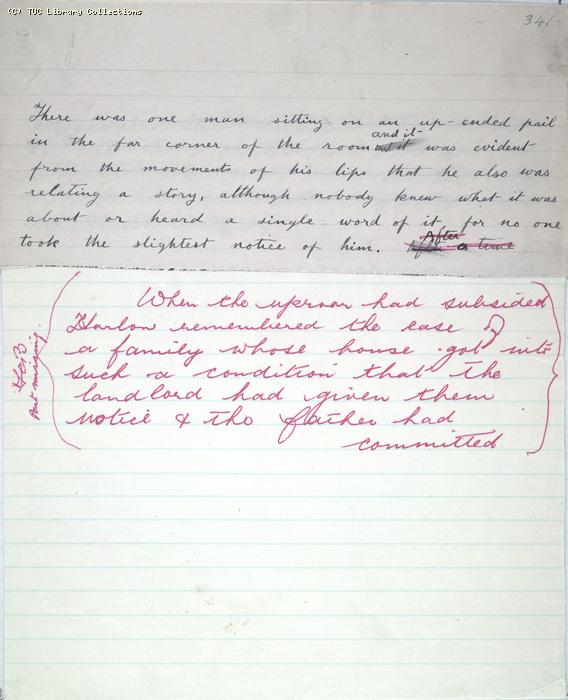 (C) TUC Library Collections
341
There was one man sitting on an up-ended pail
in the far corner of the room and it was evident
from the movements of his lips that he also was
relating a story, although nobody knew what it was
about or heard a single word of it, for no one
took the slightest notice of him. After a time
When the uproar had subsided
Harlow remembered the case of
a family whose house got into
such a condition that the
landlord had given them
notice & the father had
committed